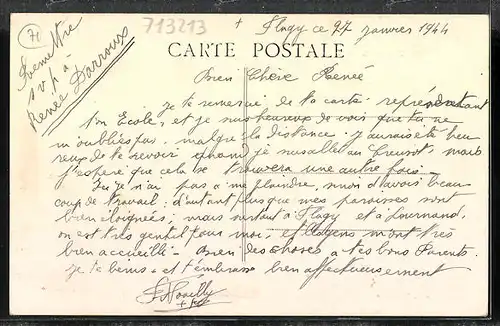 71
713213
+ Flagy ce 27 janvier 1944
Remettre
s v p à
Renée Darroux
CARTE POSTALE
Bien Chère Renée
Je te remercie de ta carte représentant
ton Ecole, et je suis heureux de voir que tu ne
m'oublies pas, malgré la distance. J'aurais été heu
reux de te revoir quand je suis allé au Creusot mais
j'espère que cela se trouvera une autre fois.
Ici je n'ai pas à me plaindre, sinon d'avoir beau
coup de travail: d'autant plus que mes paroisses sont
bien éloignées; mais surtout à Flagy et à Lournand,
on est très gentil pour moi, et m'ont très
bien accueilli. Bien des choses à tes bons Parents.
Je te bénis et t'embrasse bien affectueusement